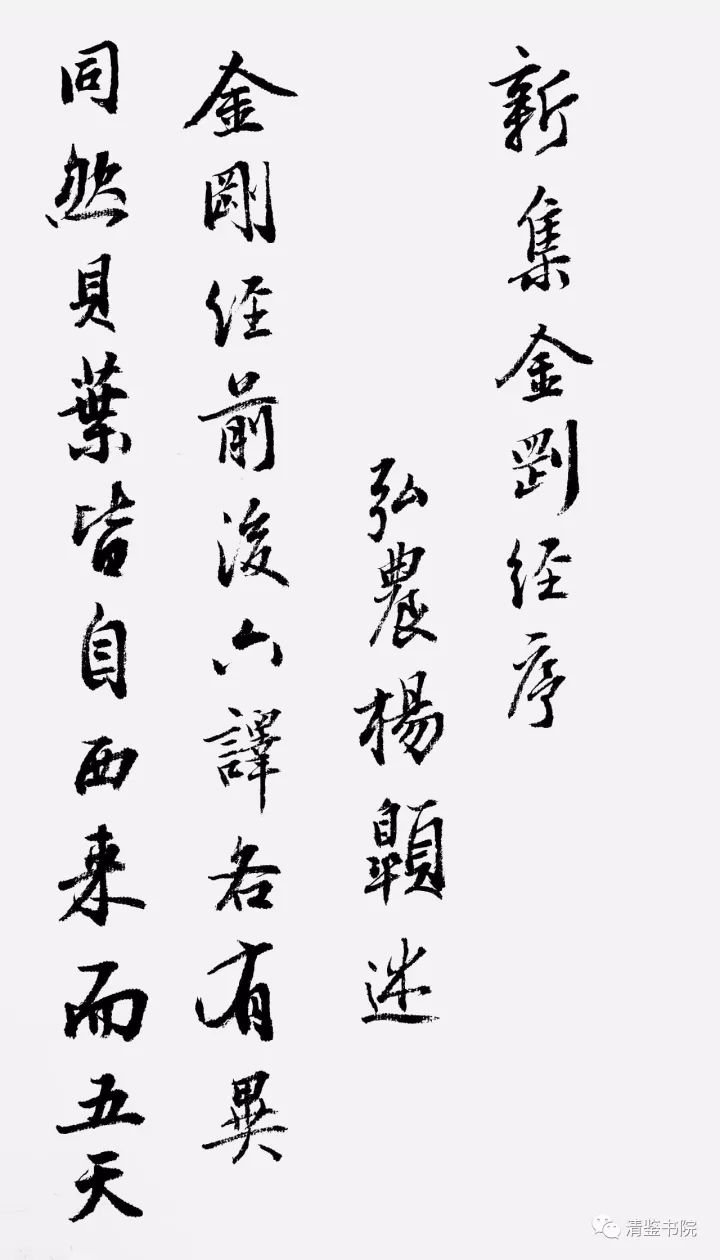 新集金剛経序
弘農楊顗述
金剛経前後六譯各有異
同然貝葉皆自西来而五天
清鉴书院